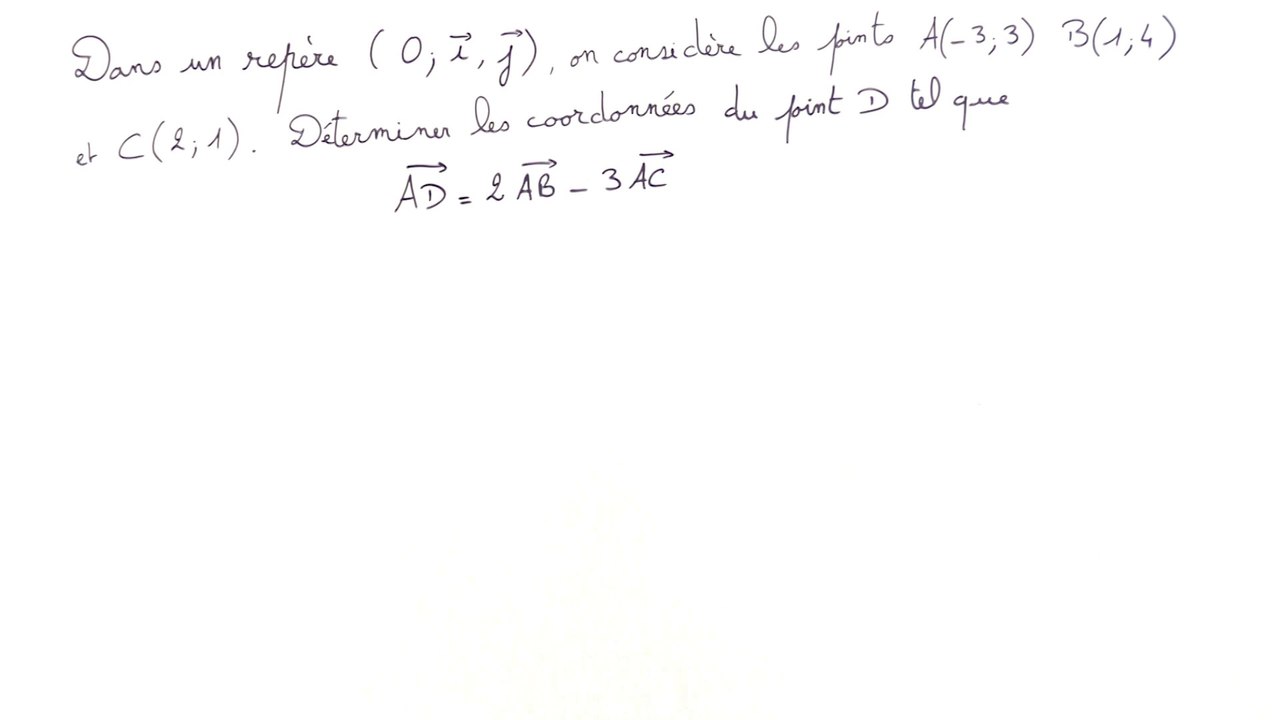 Dans un repère (O; i⃗, j⃗), on considère les points A(-3;3) B(1;4)
et C(2;1). Déterminer les coordonnées du point D tel que
A͞D⃗ = 2 AB⃗ - 3 AC⃗